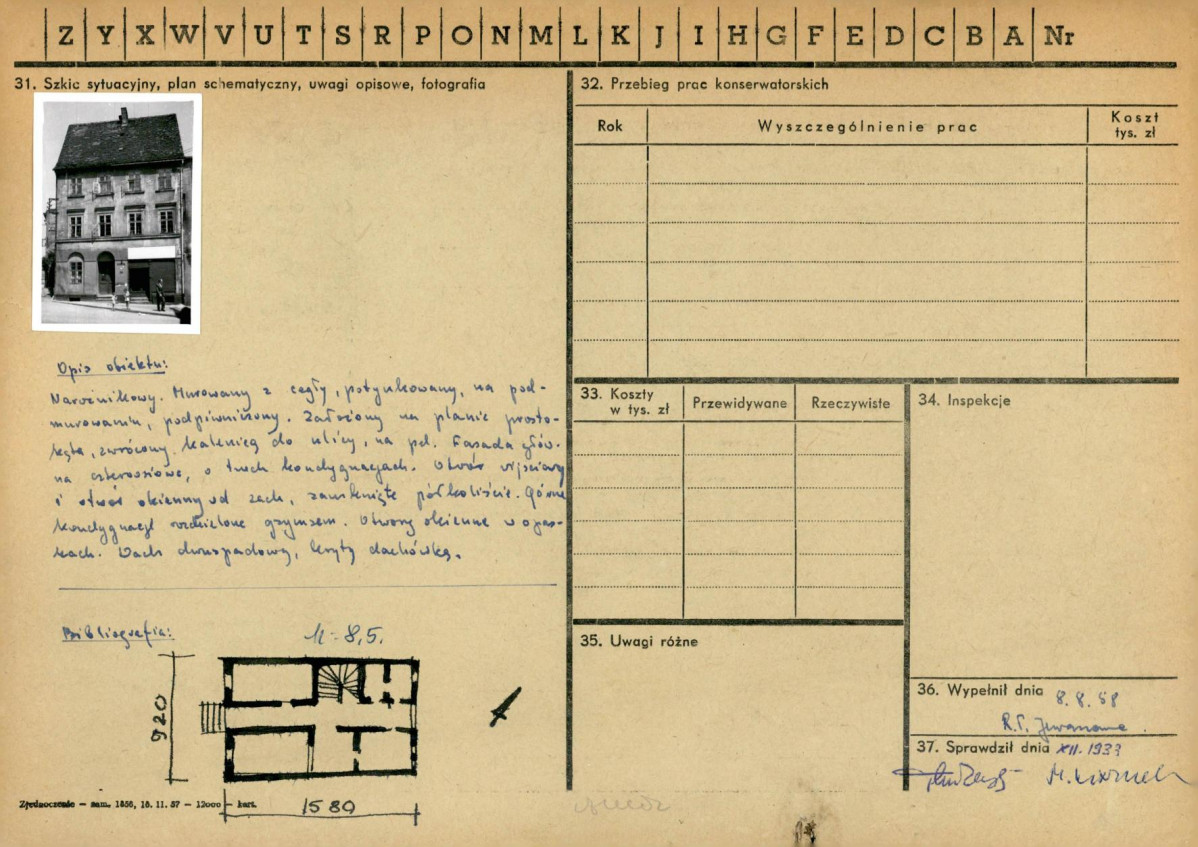 Z Y X W V U T S R P O N M L K J I H G F E D C B A Nr
31. Szkic sytuacyjny, plan schematyczny, uwagi opisowe, fotografia
Opis obiektu:
Narożnikowy. Murowany z cegły, potynkowany, na pod-
murowaniu, podpiwniczony. Założony na planie prosto-
kąta, zwrócony kalenicą do ulicy, na pd. Fasada głów-
na czteroosiowa, o trzech kondygnacjach. Otwór wejściowy
i otwór okienny od zach. zamknięte półkoliście. Górne
kondygnacje rozdzielone gzymsem. Otwory okienne w opas-
kach. Dach dwuspadowy, kryty dachówką.
Bibliografia:
8,5.
920
1580
Zjednoczenie — zam. 1856, 18. 11. 57 — 12000 — kart.
32. Przebieg prac konserwatorskich
Rok
Wyszczególnienie prac
Koszt
tys. zł
33. Koszty
w tys. zł
Przewidywane
Rzeczywiste
34. Inspekcje
35. Uwagi różne
36. Wypełnił dnia 8.8.58
37. Sprawdził dnia XII.